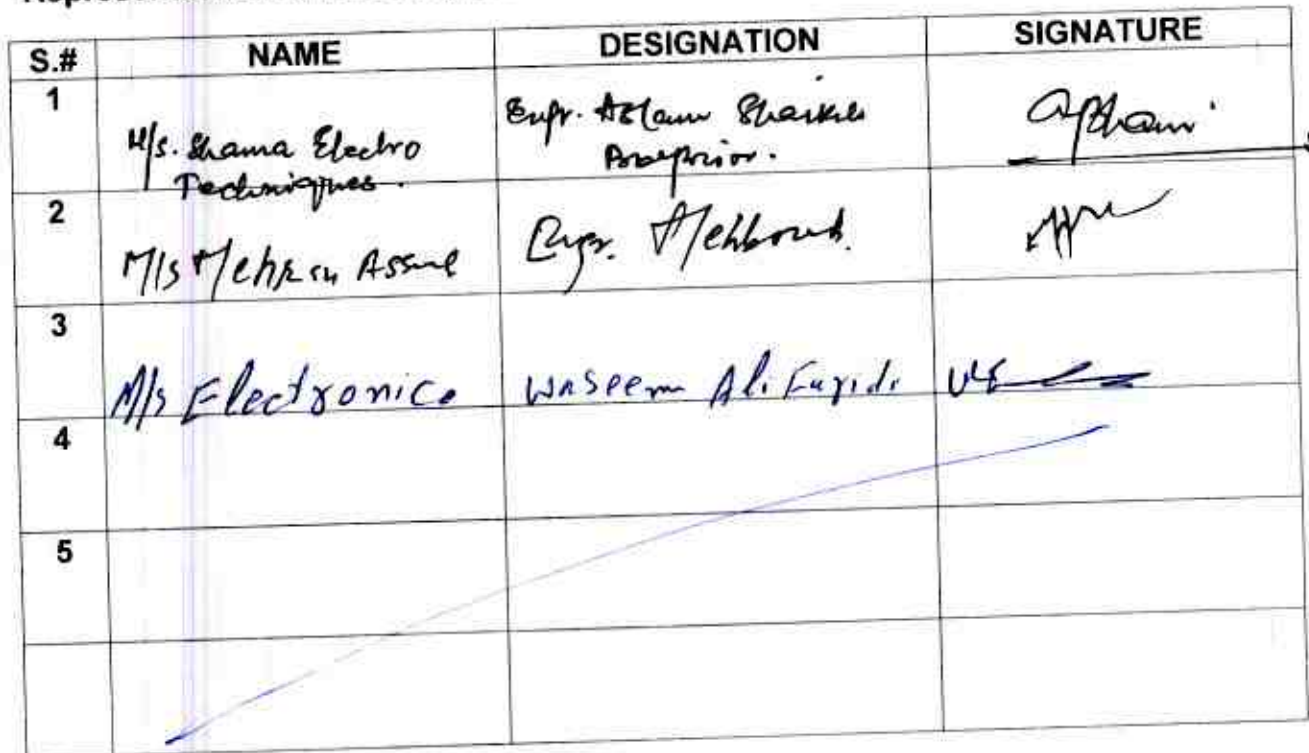 S.# NAME DESIGNATION SIGNATURE
1 M/s. Shama Electro Techniques. Engr. Aslam Shaikh
2 M/s Mehran Engr. Mehboob.
3 M/s Electronica Waseem Ali Faridi
4
5